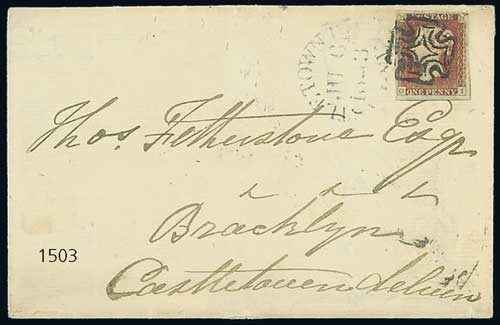 POSTAGE
ONE PENNY
Thos. Fetherstone Esqr
Bracklyn
Castletowndelvin
1503